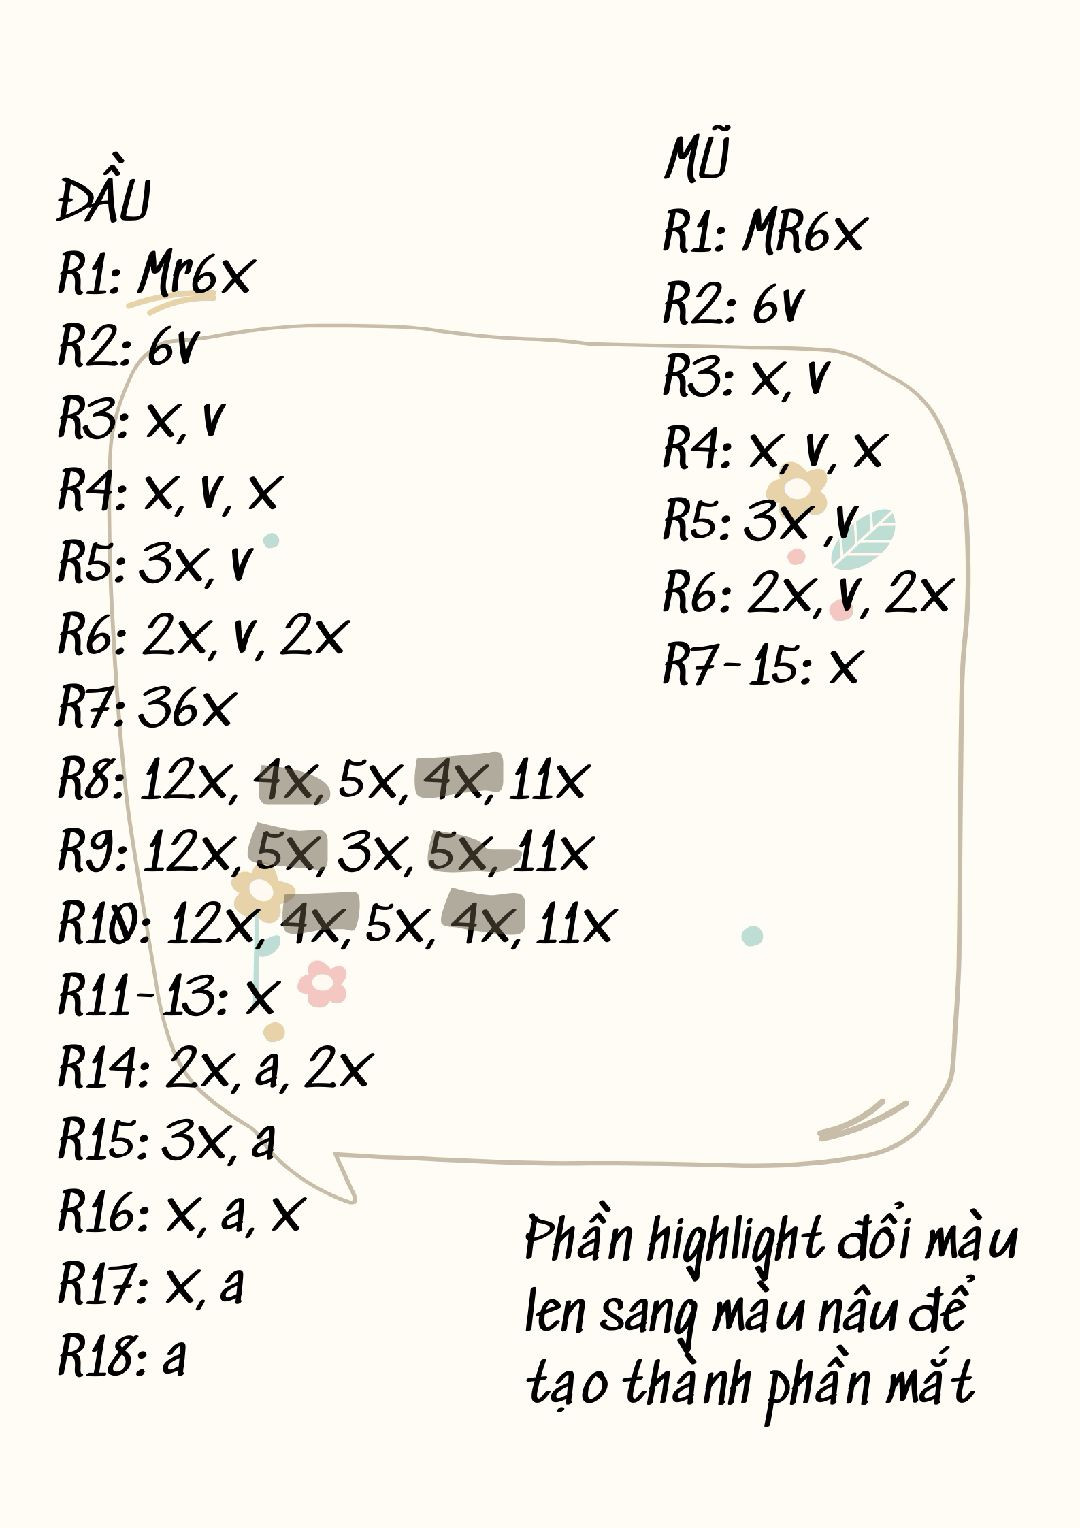 ĐẦU
R1: Mr6x
R2: 6v
R3: x, v
R4: x, v, x
R5: 3x, v
R6: 2x, v, 2x
R7: 36x
R8: 12x, 4x, 5x, 4x, 11x
R9: 12x, 5x, 3x, 5x, 11x
R10: 12x, 4x, 5x, 4x, 11x
R11-13: x
R14: 2x, a, 2x
R15: 3x, a
R16: x, a, x
R17: x, a
R18: a
MŨ
R1: MR6x
R2: 6v
R3: x, v
R4: x, v, x
R5: 3x ,v
R6: 2x, v, 2x
R7-15: x
Phần highlight đổi màu
len sang màu nâu để
tạo thành phần mắt